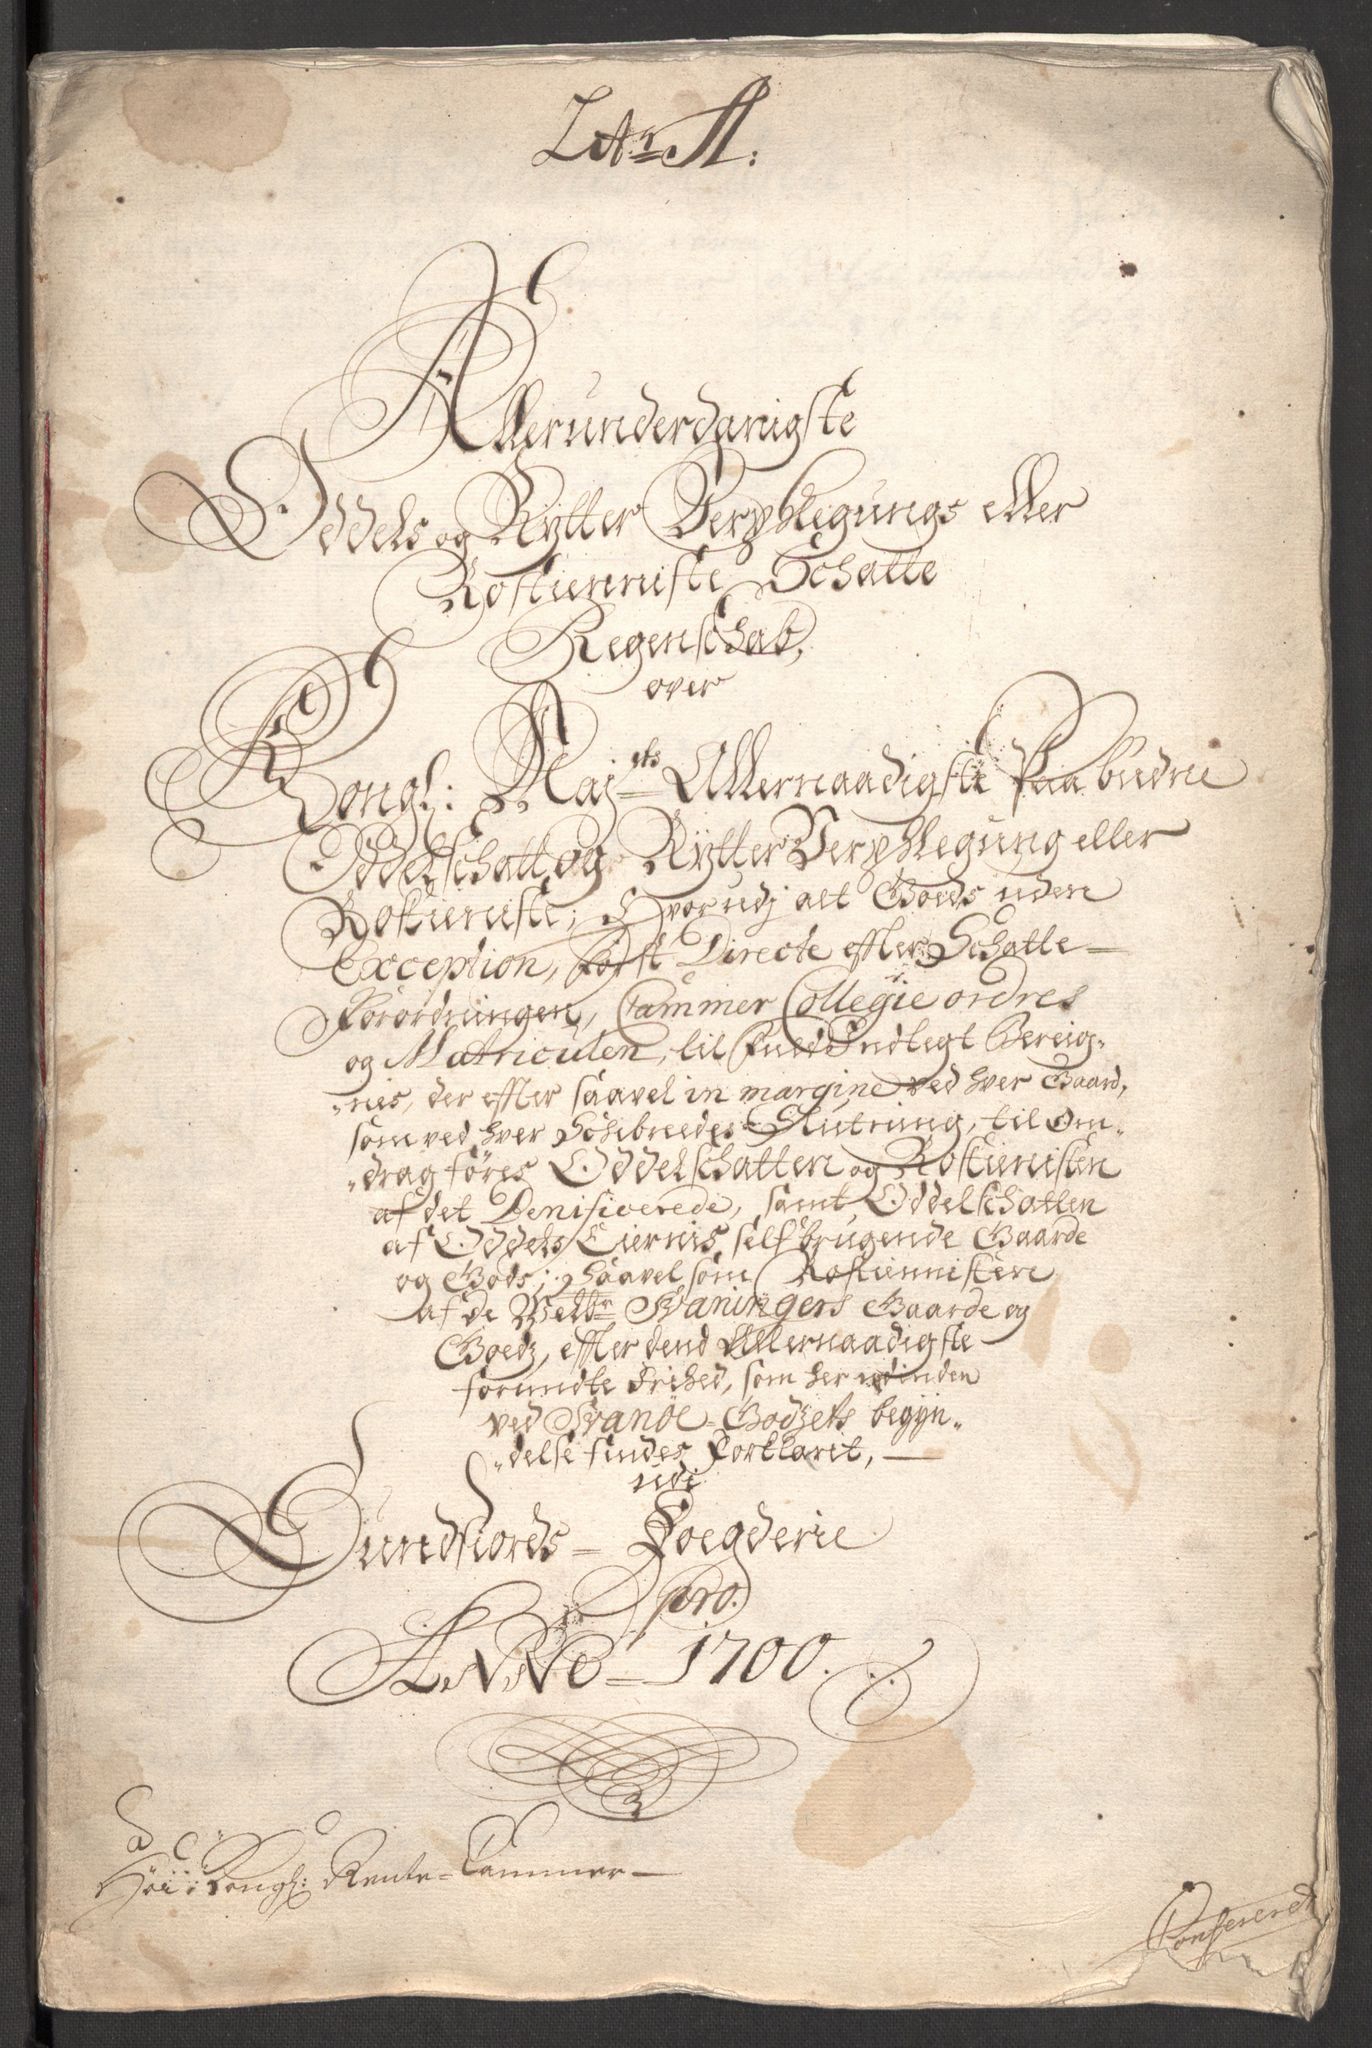 Litr A:
Allerunderdanigste
Oddels og Rytter Verphlegungs eller
Rostienniste Schatte
Regenschab,
over
Kongl: Maj:ts Allernaadigste Paabudne
Oddelschatt og Rytter Verphlegung eller
Rostieniste; Hvorudj alt Goeds uden
Exception, først Directe effter Schatte-
Forordningen, Cammer Collegie ordres
og Matriculen, til fuld Endtlegt Bereig-
-nes, der effter saavel in margine ved hver Gaard,
som ved hver Schibreedes Slutning, til om-
-drag føres Oddelschatten og Rostienisten
af det Benificerede, samt Oddelschatten
af Oddels Eiernis self brugende Gaarde
og Gods; saavel som Rostiennisten
af de Welbr Svaningers Gaarde og
Goedz, effter dend Allernaadigste
forundte Frihed, som her udinden
ved Svanøe-Godzets begyn-
-delse findes Forklarit,
udi
Sundfiords = Foegderie
pro.
ANNO = 1700.
Høi Kongl: Rente-Cammer
Confereret